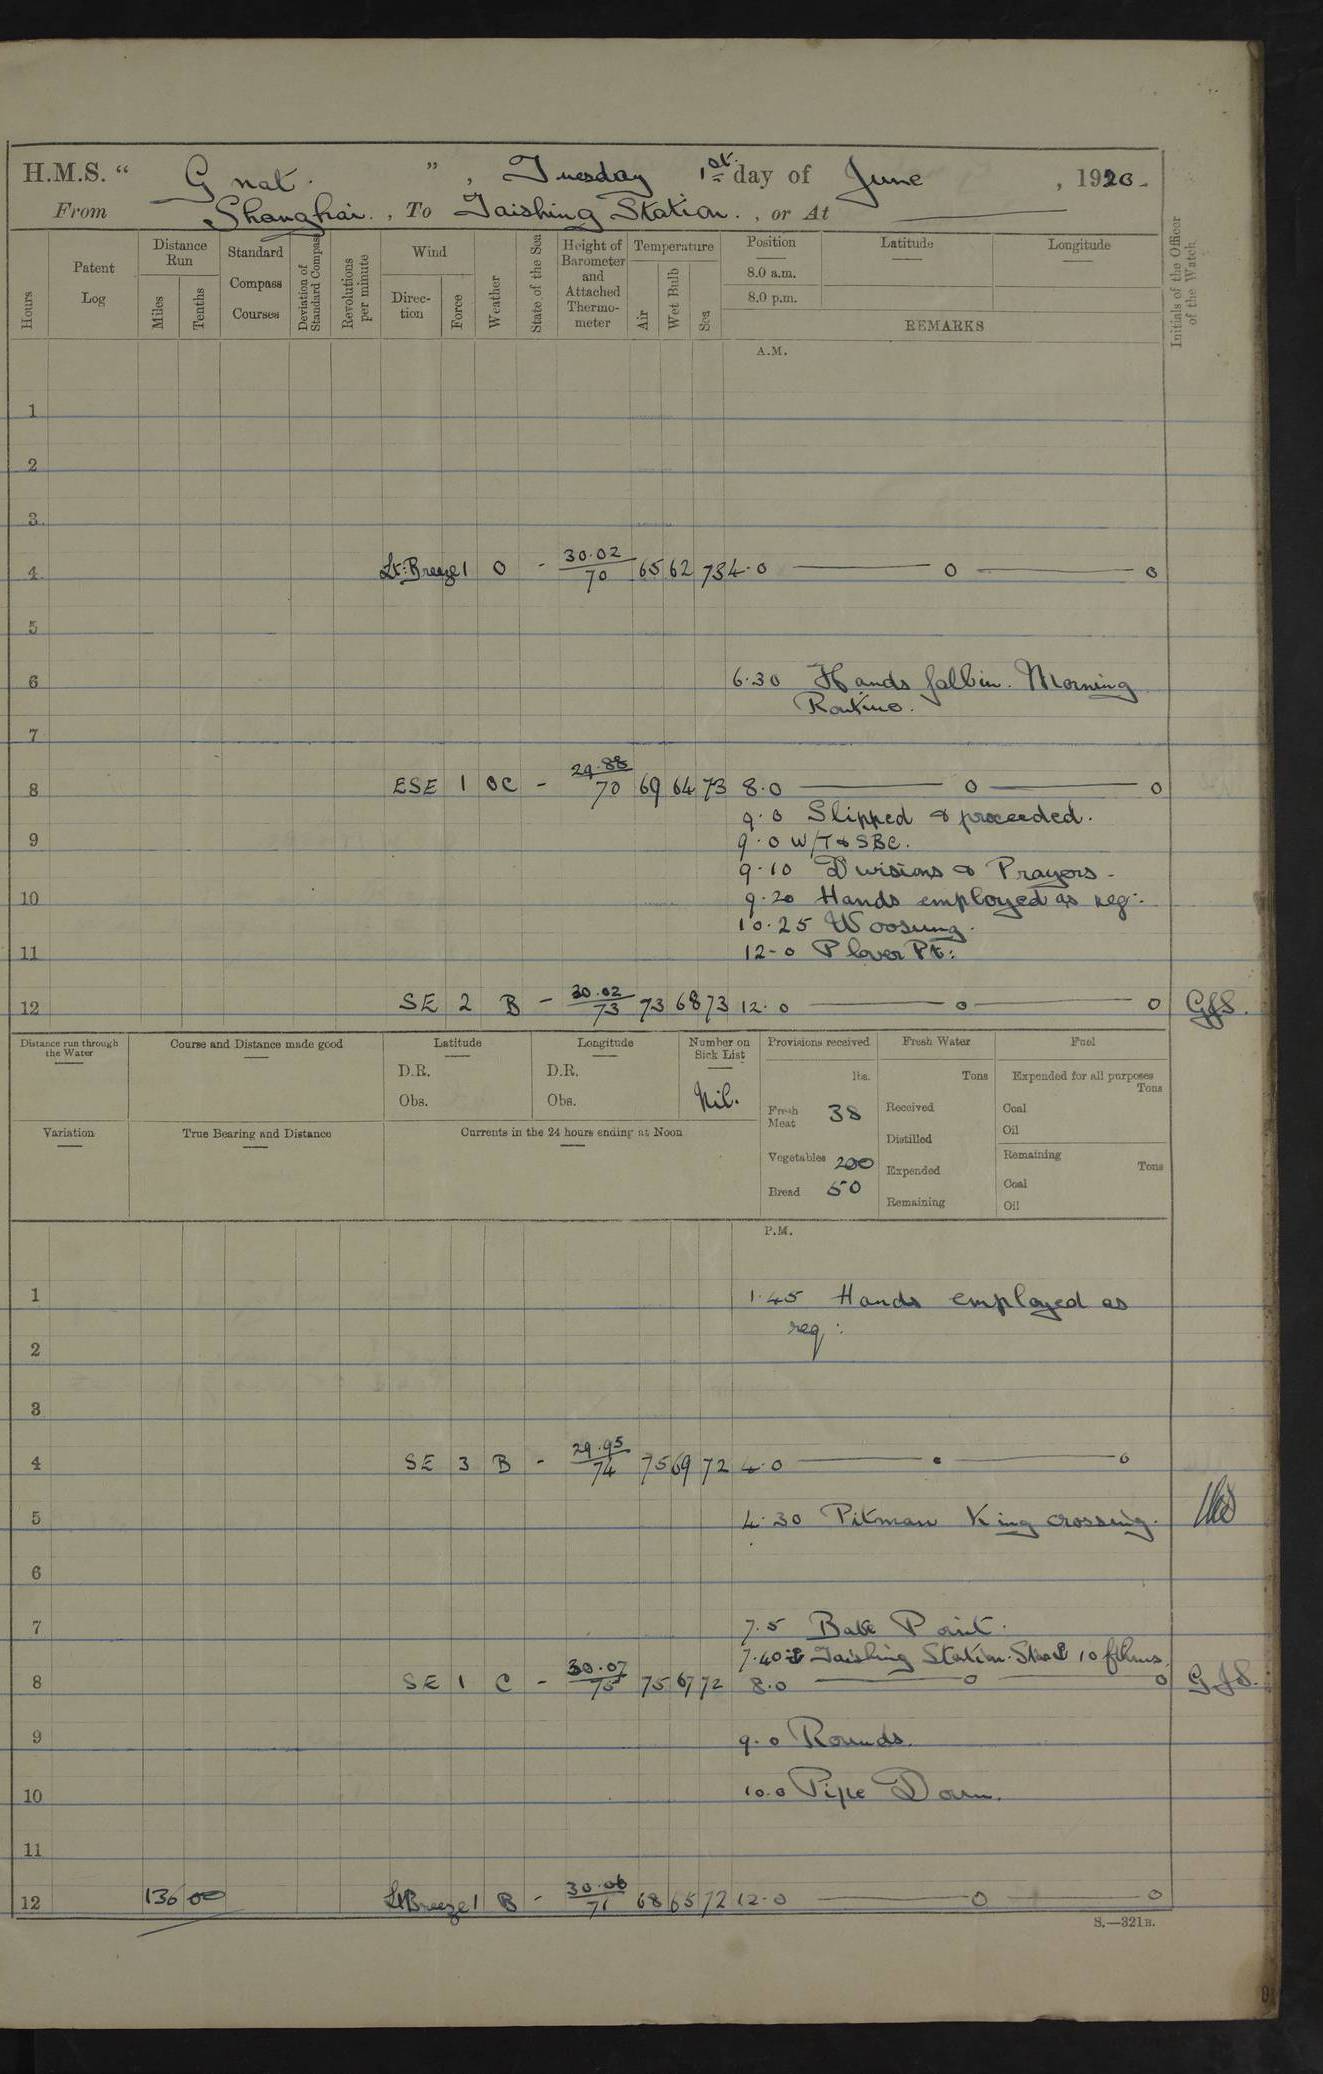 H.M.S. " Gnat. " , Tuesday 1st day of June , 1920.
From Shanghai. , To Taishing Station. , or At
Hours
Patent Log
Distance Run
Miles
Tenths
Standard Compass Courses
Deviation of Standard Compass
Revolutions per minute
Wind
Direction
Force
Weather
State of the Sea
Height of Barometer and Attached Thermometer
Temperature
Air
Wet Bulb
Sea
Position
8.0 a.m.
8.0 p.m.
Latitude
Longitude
REMARKS
Initials of the Officer of the Watch
A.M.
1
2
3
4 Lt: Breeze 1 O - 30.02/70 65 62 73 4.0 o o
5
6 6.30 Hands fall in. Morning
Routine.
7
8 ESE 1 OC - 29.88/70 69 64 73 8.0 o o
9.0 Slipped & proceeded.
9 9.0 W/T & SBC.
9.10 Divisions & Prayers.
10 9.20 Hands employed as req:
10.25 Woosung.
11 12-0 Plover Pt:
12 SE 2 B - 30.02/73 73 68 73 12.0 o o GJS.
Distance run through the Water
Course and Distance made good
Latitude
D.R.
Obs.
Longitude
D.R.
Obs.
Number on Sick List
Nil.
Provisions received
lbs.
Fresh Meat 38
Vegetables 200
Bread 50
Fresh Water
Tons
Received
Distilled
Expended
Remaining
Fuel
Expended for all purposes
Tons
Coal
Oil
Remaining
Tons
Coal
Oil
Variation
True Bearing and Distance
Currents in the 24 hours ending at Noon
P.M.
1 1.45 Hands employed as
req:
2
3
4 SE 3 B - 29.95/74 75 69 72 4.0 o
5 4.30 Pitman King crossing.
6
7 7.5 Bate Point.
7.40 Taishing Station. 10 fthms.
8 SE 1 C - 30.07/75 75 67 72 8.0 o o GJS.
9 9.0 Rounds.
10 10.0 Pipe Down.
11
12 130 00 Lt Breeze 1 B - 30.06/71 68 65 72 12.0 o o
S.—321B.